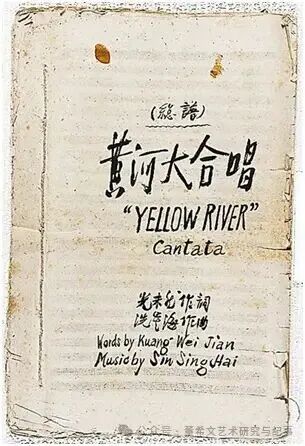 (總譜)
黃河大合唱
"YELLOW RIVER"
Cantata
光未然作詞
洗星海作曲
Words by Kuang Wei Jian
Music by Sin Sing Hai
公众号·董希文艺术研究与纪事